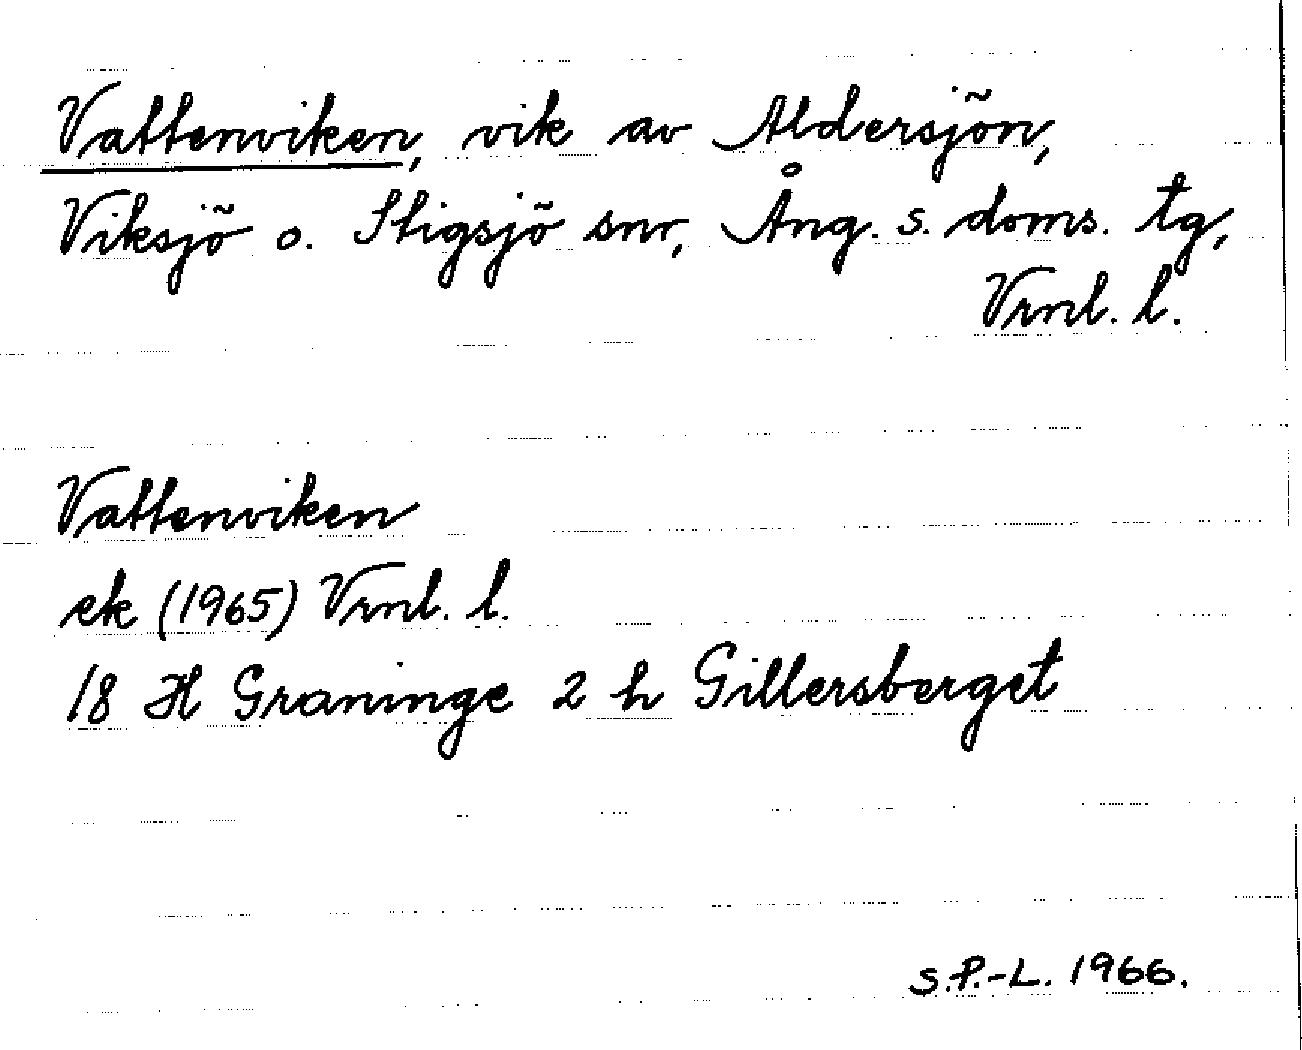 Vattenviken, vik av Aldersjön,
Viksjö o. Stigsjö snr, Ång. s. doms. tg,
Vrnl. l.
Vattenviken
ek (1965) Vrnl. l.
18 H Graninge 2 h Gillersberget
S.P.-L. 1966.